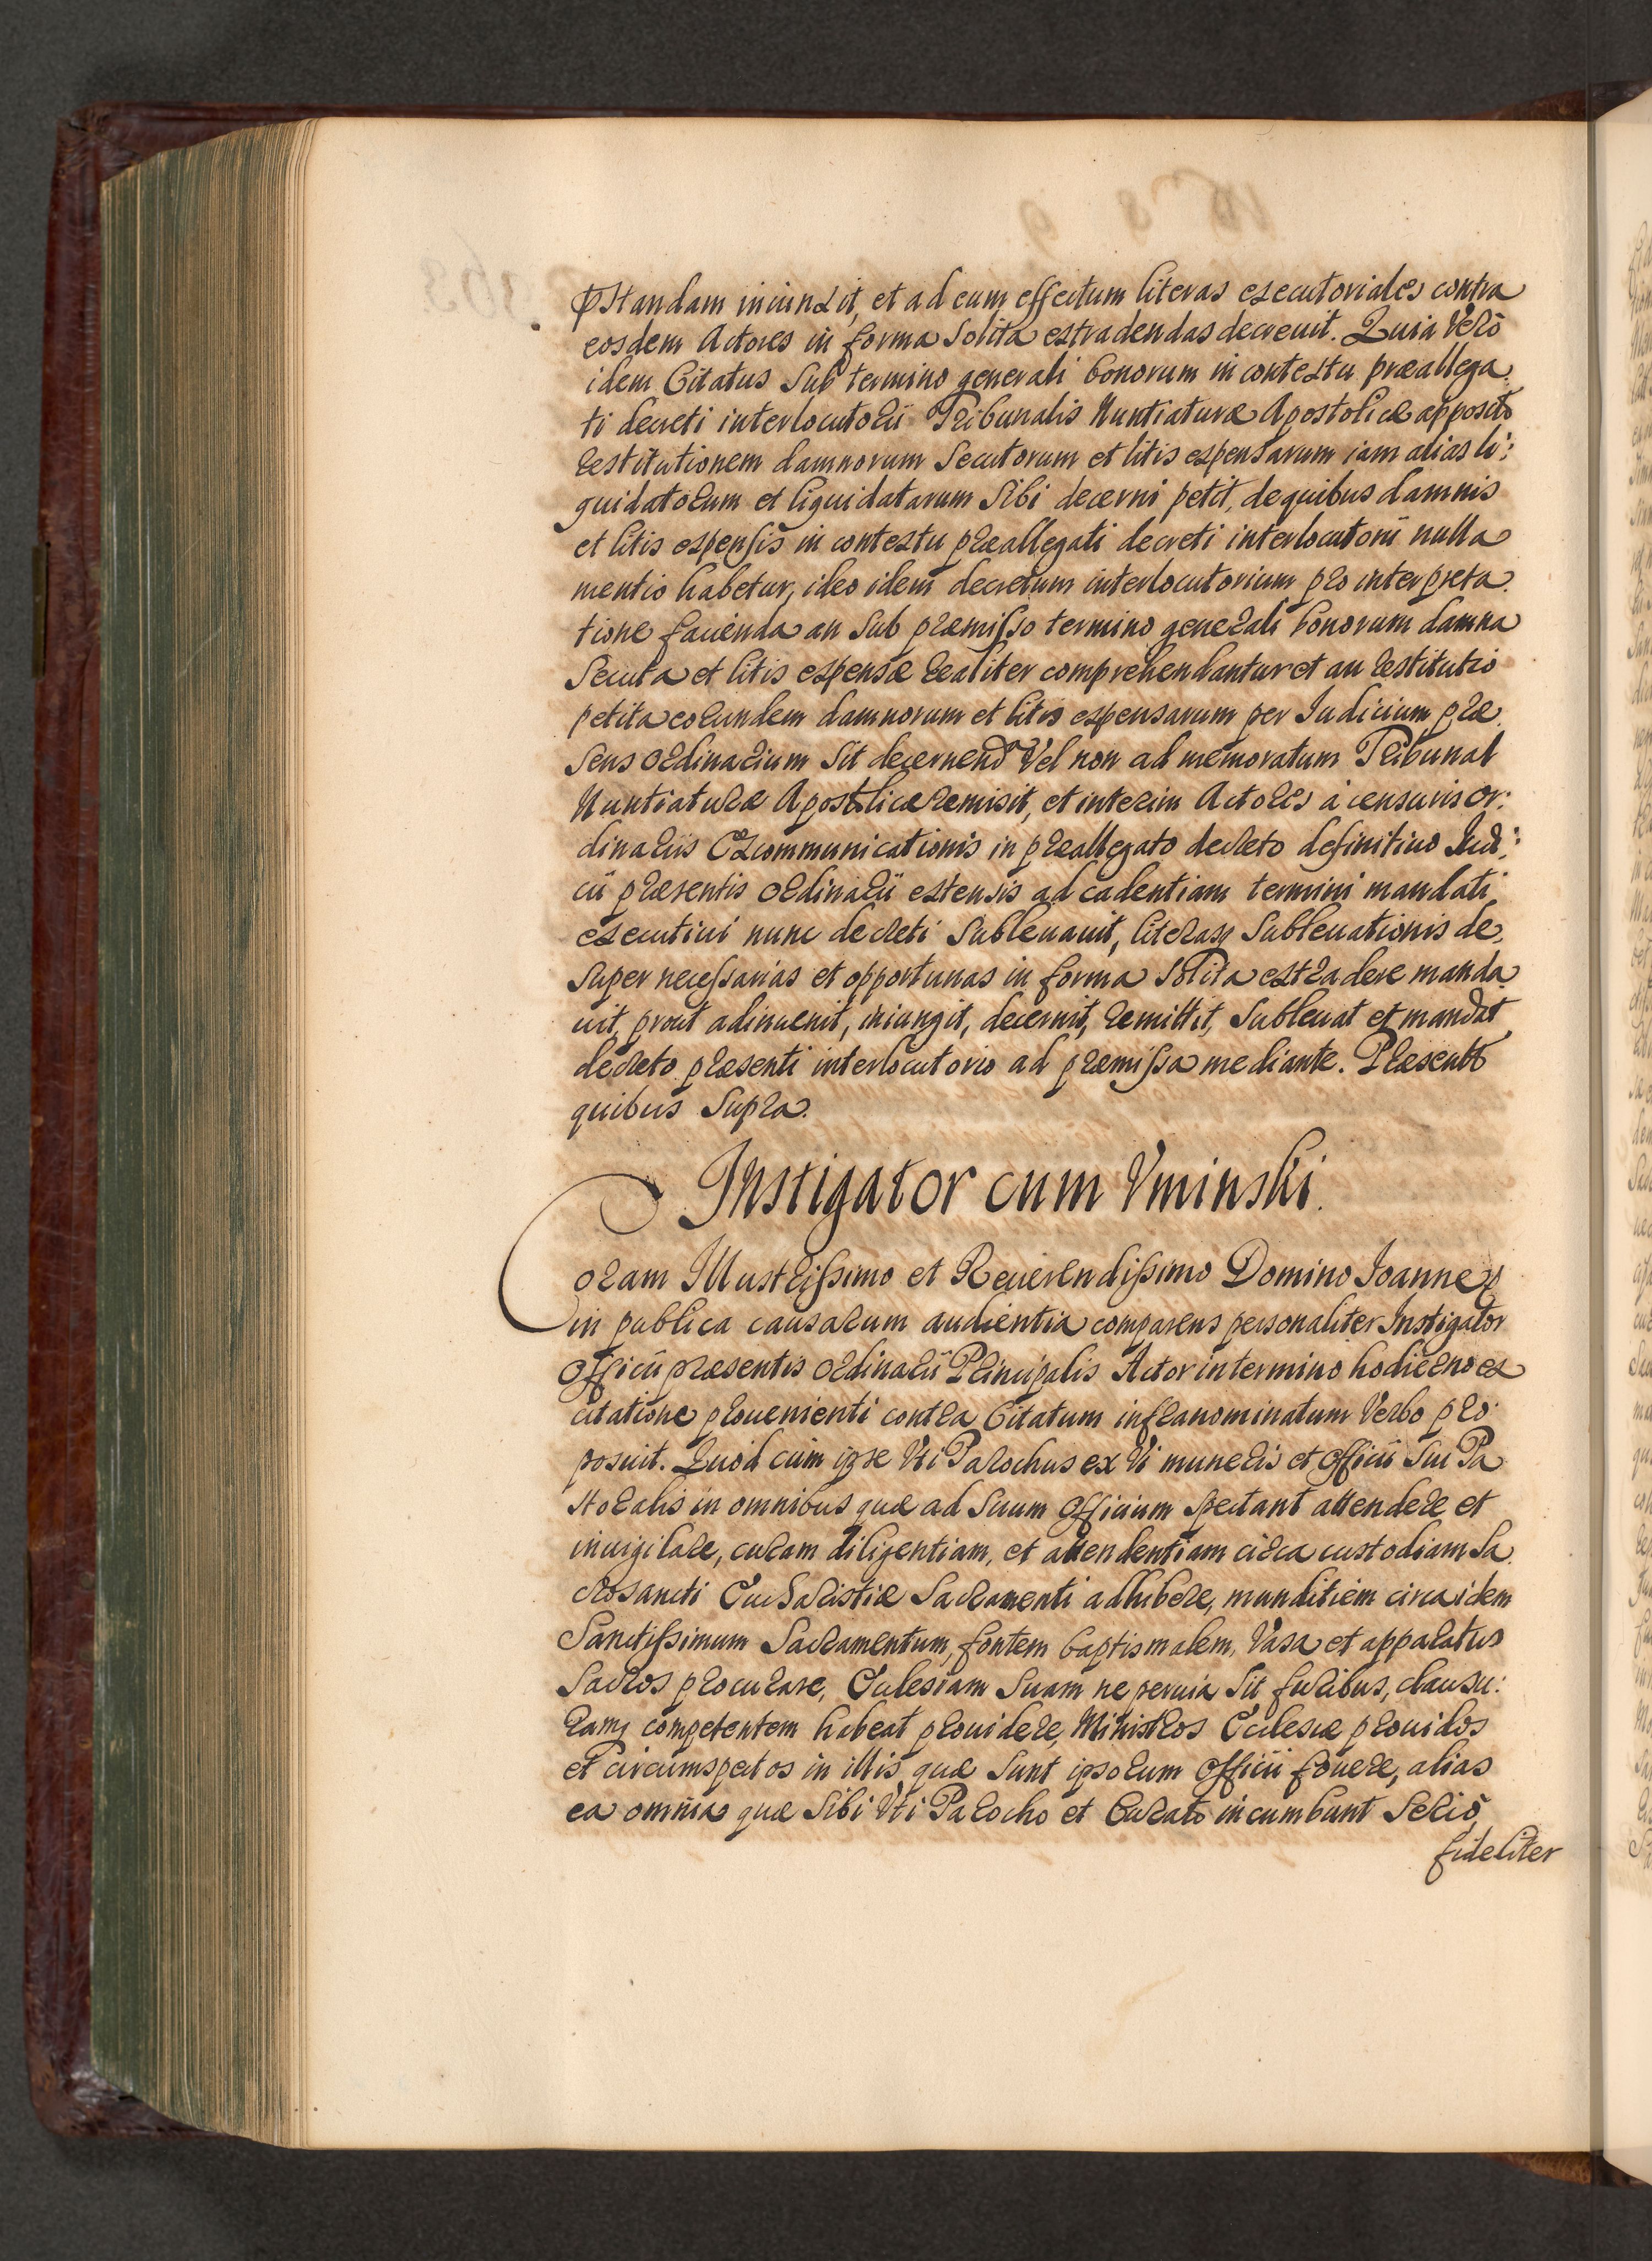 pstandam iniunxit, et ad eum effectum literas executoriales contra
eosdem Actores in forma solita extradendas decreuit. Quia verò
idem Citatus sub termino generali bonorum in contextu præallega
ti decreti interlocutorii Tribunalis Nuntiaturæ Apostolicæ apposito
restitutionem damnorum secutorum et litis expensarum iam alias li:
quidatorum et liquidatarum sibi decerni petit, de quibus damnis
et litis expensis in contextu præallegati decreti interlocutorii nulla
mentio habetur, ideo idem decretum interlocutorium pro interpreta
tione facienda an sub præmisso termino generali bonorum damna
secuta et litis expensæ realiter comprehendantur et an restitutio
petita eorundem damnorum et litis expensarum per Iudicium præ
sens ordinarium sit decernend vel non ad memoratum Tribunal
Nuntiaturæ Apostolicæ remisit, et interim Actores à censuris or:
dinariis Excommunicationis in præallegato decreto definitiuo Iudi:
cii præsentis ordinarii extensis ad cadentiam termini mandati
executiui nunc decreti subleuauit, literasq subleuationis de
super necessarias et opportunas in forma solita extradere manda
uit, prout adinuenit, iniungit, decernit, remittit, subleuat et mandat
decreto præsenti interlocutorio ad præmissa mediante. Præsentb
quibus supra.
Instigator cum Vminski.
Coram Illustrissimo et Reuerendissimo Domino Ioanne
in publica causarum audientia comparens personaliter Instigator
Officii præsentis ordinarii Principalis Actor in termino hodierno ex
citatione prouenienti contra Citatum infranominatum verbo pro
posuit. Quod cùm ipse vti Parochus ex vi muneris et Officii sui Pa
storalis in omnibus quæ ad suum Officium spectant attendere et
inuigilare, curam diligentiam, et attendentiam circa custodiam Sa
crosancti Eucharistiæ Sacramenti adhibere, munditiem circa idem
Sanctissimum Sacramentum, fontem baptismalem, Vasa et apparatus
Sacros procurare, Ecclesiam suam ne peruia sit furibus, clausu:
ramq competentem habeat prouidere, Ministros Ecclesiæ prouidos
et circumspectos in illis quæ sunt ipsorum Officii fouere, alias
ea omnia quæ sibi vti Parocho et Curato incumbunt seriò
fideliter